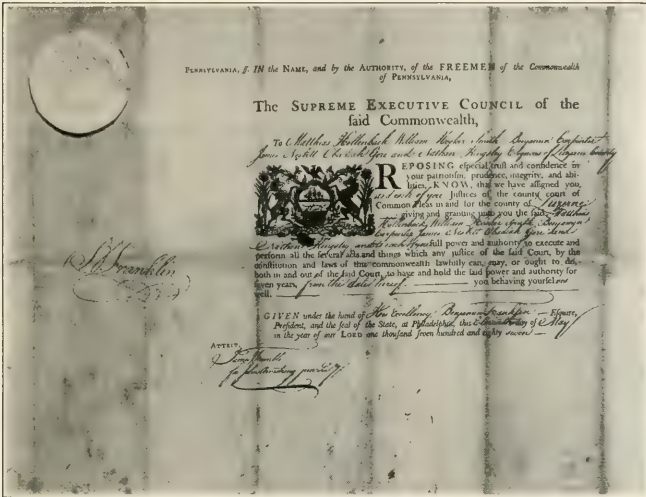 PENNSYLVANIA, ſſ. IN the NAME, and by the AUTHORITY, of the FREEMEN of the Commonwealth
of PENNSYLVANIA,
The SUPREME EXECUTIVE COUNCIL of the
ſaid Commonwealth,
To Matthias Hollenback William Hooker Smith Benjamin Carpenter
James Nesbitt Obadiah Gore and Nathan Kingsley Esquires of Luzerne County
REPOSING eſpecial truſt and confidence in
your patriotiſm, prudence, integrity, and abi-
lities, KNOW, that we have aſſigned you,
and each of you Juſtices of the county court of
Common Pleas in and for the county of Luzerne
giving and granting unto you the ſaid Matthias
Hollenback, William Hooker Smith, Benjamin
Carpenter James Nesbitt Obadiah Gore and
Nathan Kingsley and to each of you full power and authority to execute and
perform all the ſeveral acts and things which any juſtice of the ſaid Court, by the
conſtitution and laws of this commonwealth lawfully can, may, or ought to do,
both in and out of the ſaid Court, to have and hold the ſaid power and authority for
ſeven years, from the date hereof. you behaving yourſelves
well.
B Franklin
GIVEN under the hand of His Excellency Benjamin Franklin Eſquire,
Preſident, and the ſeal of the State, at Philadelphia, this day of May
in the year of our LORD one thouſand ſeven hundred and eighty ſeven
ATTEST.